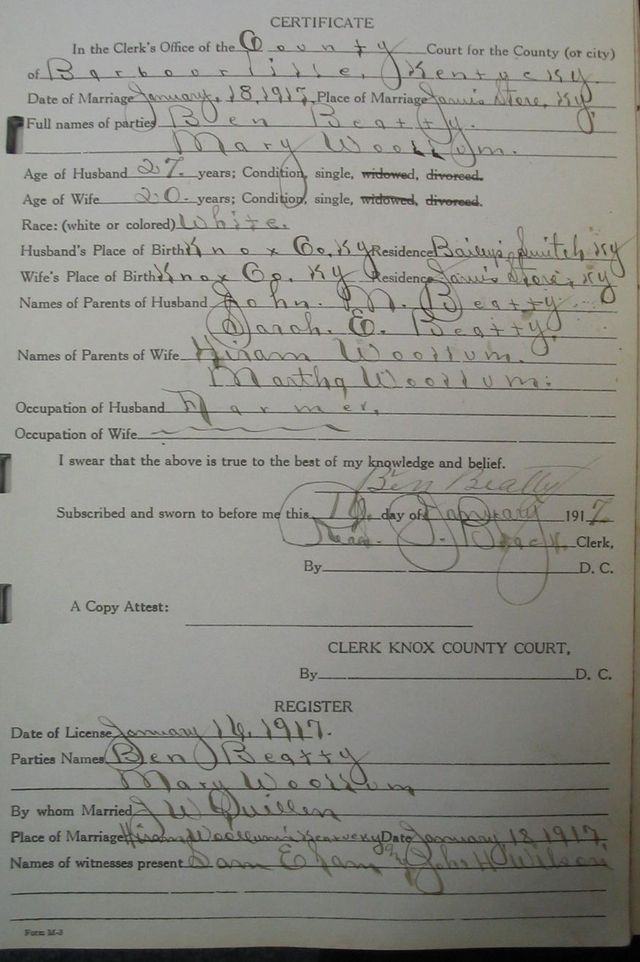 CERTIFICATE
In the Clerk's Office of the County Court for the County (or city)
of Barbourville, Kentucky.
Date of Marriage January, 18, 1917, Place of Marriage Jarvis Store, Ky.
Full names of parties Ben Beatty.
Mary Woollum.
Age of Husband 27. years; Condition, single, widowed, divorced.
Age of Wife 20. years; Condition, single, widowed, divorced.
Race: (white or colored) White.
Husband's Place of Birth Knox Co, Ky Residence Bailey's Switch Ky
Wife's Place of Birth Knox Co. Ky Residence Jarvis Store, Ky
Names of Parents of Husband John. M. Beatty.
Sarah. E. Beatty,
Names of Parents of Wife Hiram Woollum.
Martha Woollum.
Occupation of Husband Farmer,
Occupation of Wife
I swear that the above is true to the best of my knowledge and belief.
Ben Beatty
Subscribed and sworn to before me this 16, day of January 1917
Clerk,
By D. C.
A Copy Attest:
CLERK KNOX COUNTY COURT,
By D. C.
REGISTER
Date of License January 16, 1917.
Parties Names Ben Beatty
Mary Woollum
By whom Married J W Quillen
Place of Marriage Hiram Woollum's Kentucky Date January, 18, 1917,
Names of witnesses present Sam E John H Wilson
Form M-3